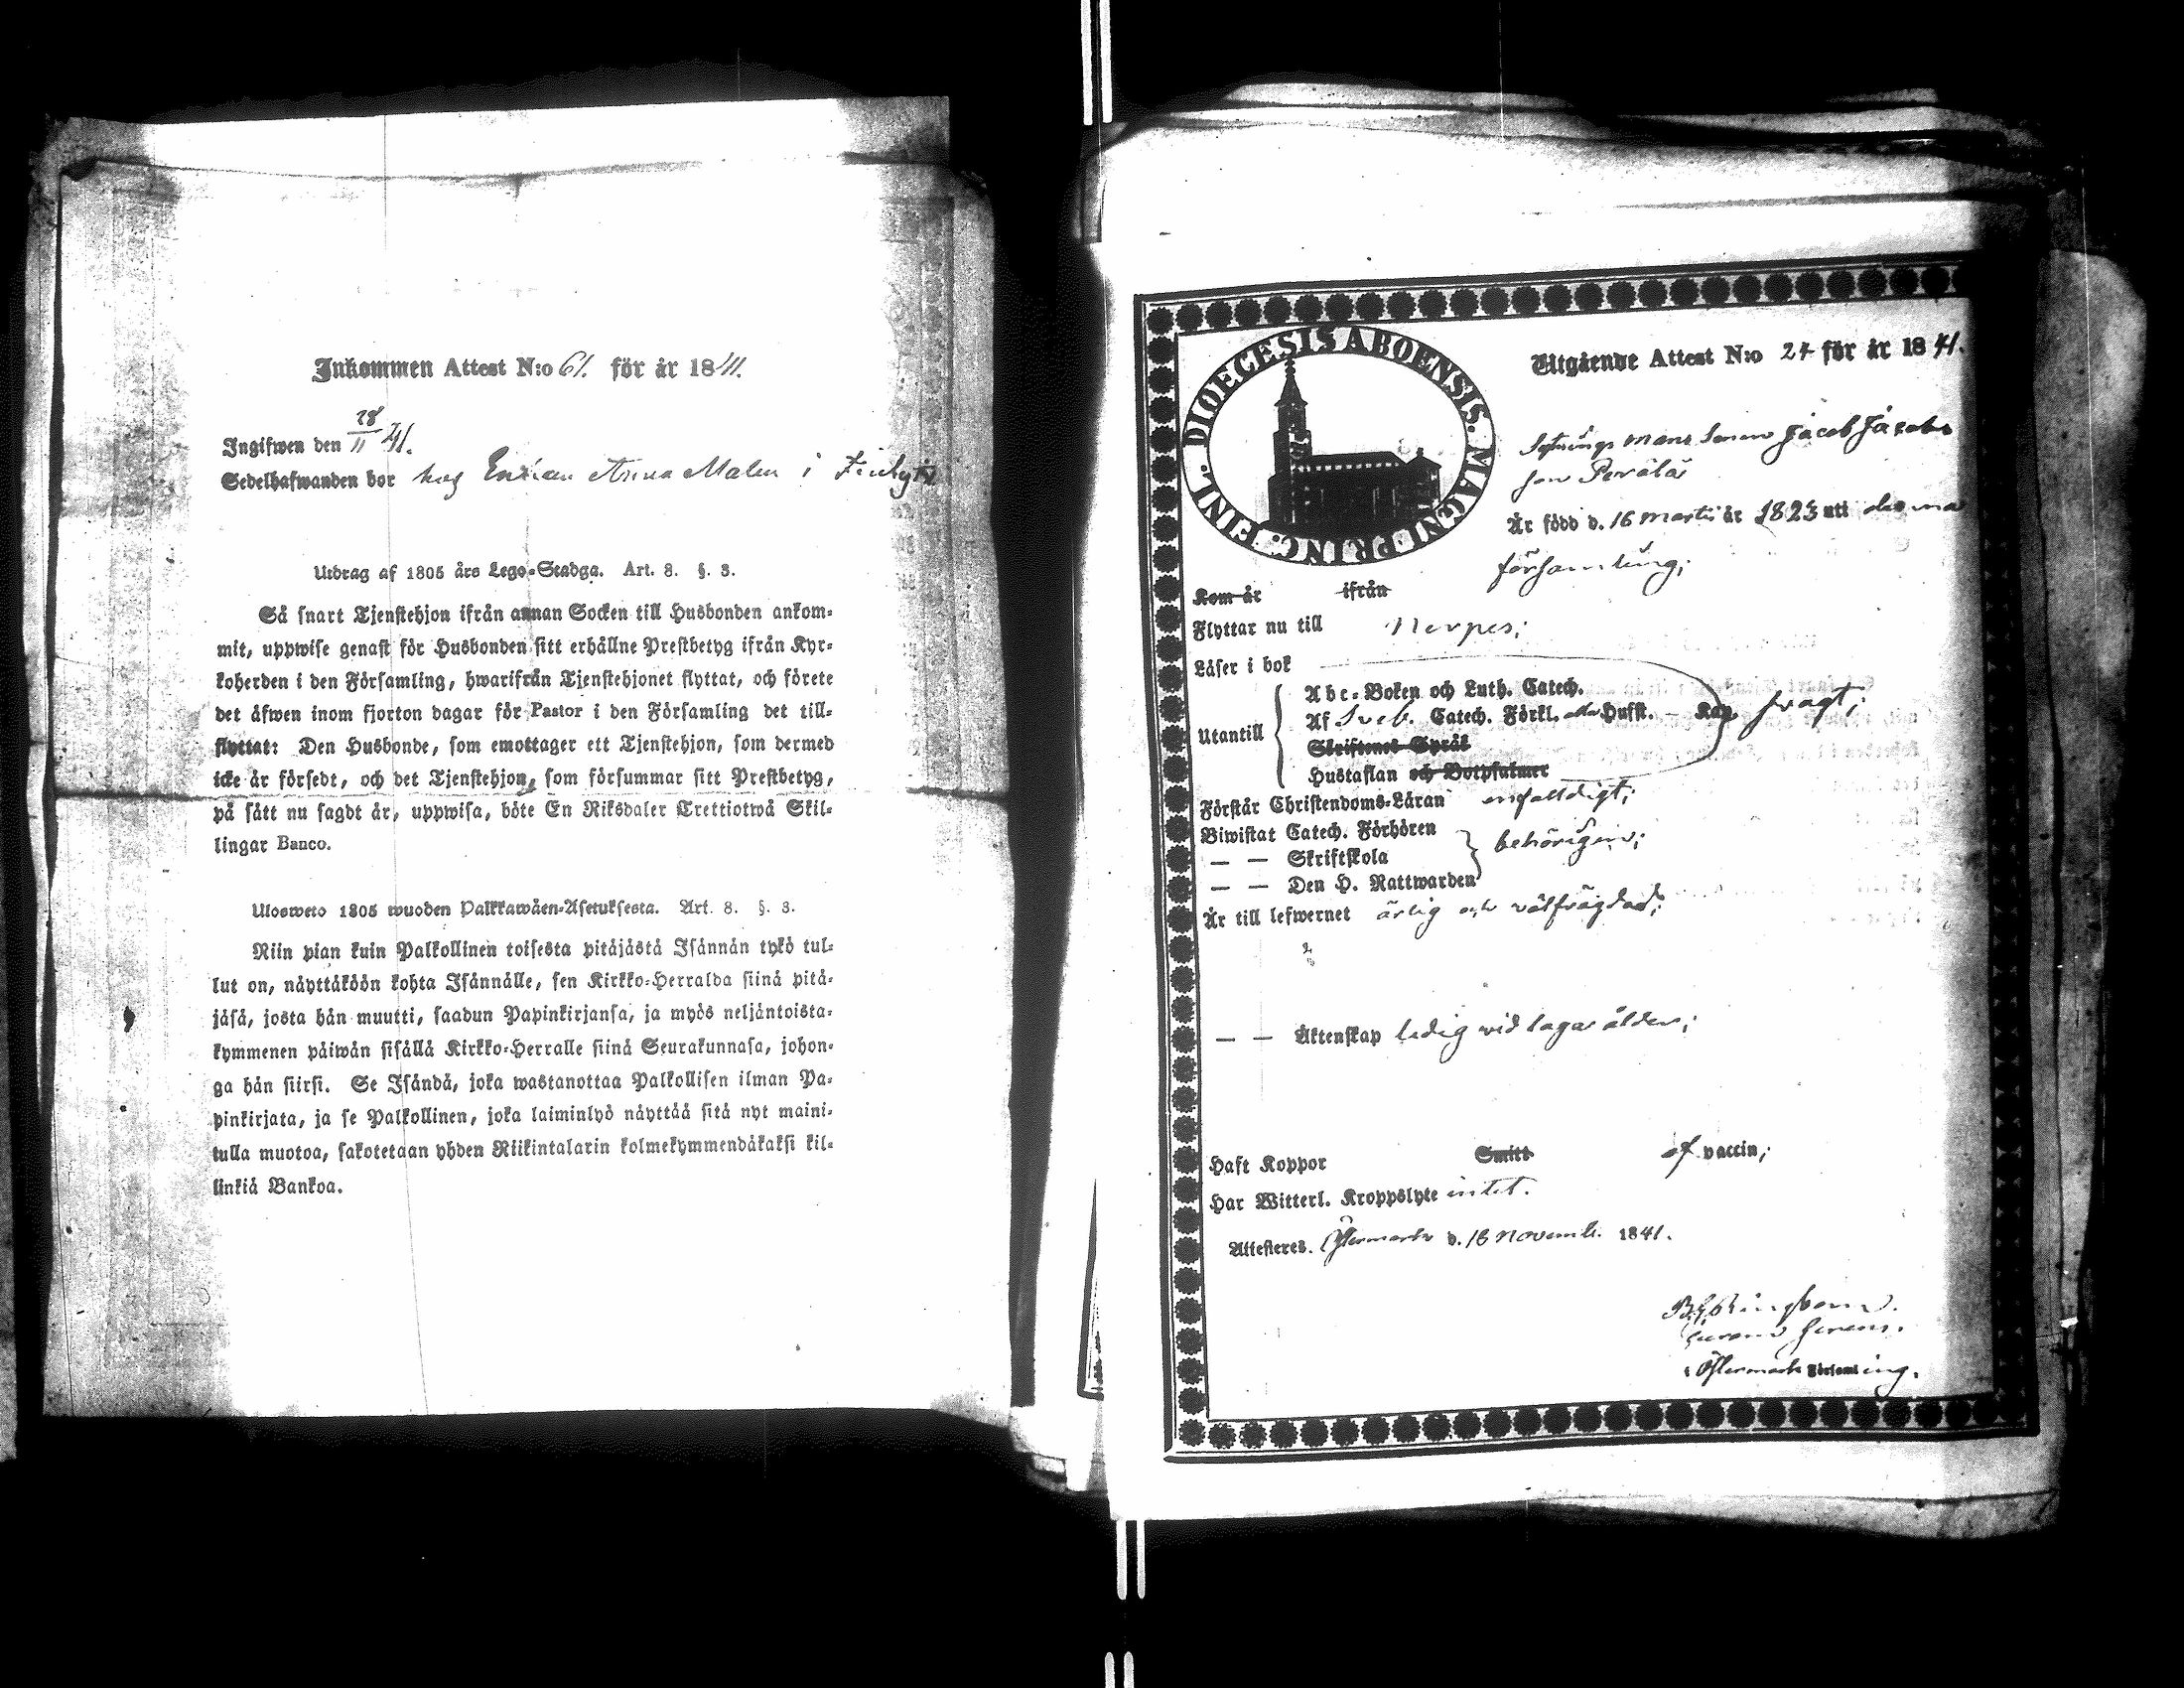 Inkommen Attest N:o 61. för år 1841.
28/11 41.
Ingifwen den
Sedelhafwanden bor hos Enkan Anna Malen i
Utdrag af 1805 års Lego-Stadga. Art. 8. §. 3.
Så snart Tjenstehjon ifrån annan Socken till Husbonden ankom-
mit, uppwise genast för Husbonden sitt erhållne Prestbetyg ifrån Kyr-
koherden i den Församling, hwarifrån Tjenstehjonet flyttat, och förete
det äfwen inom fjorton dagar för Pastor i den Församling det till-
flyttat: Den Husbonde, som emottager ett Tjenstehjon, som dermed
icke är försedt, och det Tjenstehjon, som försummar sitt Prestbetyg,
på sätt nu sagdt är, uppwisa, böte En Riksdaler Trettiotwå Skil-
lingar Banco.
Ulosweto 1805 wuoden Palkkawäen-Asetuksesta. Art. 8. §. 3.
Niin pian kuin Palkollinen toisesta pitäjästä Isännän tykö tul-
lut on, näyttäköön kohta Isännälle, sen Kirkko-Herralda siinä pitä-
jäsä, josta hän muutti, saadun Papinkirjansa, ja myös neljäntoista-
kymmenen päiwän sisällä Kirkko-Herralle siinä Seurakunnasa, johon-
ga hän siirsi. Se Isändä, joka wastanottaa Palkollisen ilman Pa-
pinkirjata, ja se Palkollinen, joka laiminlyö näyttää sitä nyt maini-
tulla muotoa, sakotetaan yhden Riikintalarin kolmekymmendäkaksi kil-
linkiä Bankoa.
DIOECESIS ABOENSIS. MAGNI PRINC. FINL.
Utgående Attest N:o 24 för år 1841.
Sytnings mans sonen Jacob Jacobs
son Perälä
Är född d. 16 Martii år 1823 uti denna
församling;
Kom år ifrån
Flyttar nu till Nerpes;
Läser i bok
Utantill
Abc-Boken och Luth. Catech.
Af Sveb. Catech. Förkl. Hufst. – Kap svagt;
Skriftenes Språk
Hustaflan och Botpsalmer
Förstår Christendoms-Läran enfalldigt;
Biwistat Catech. Förhören
— — Skriftskola behörigen;
— — Den H. Nattwarden
Är till lefwernet ärlig och välfrägdad;
— — Äktenskap ledig vid laga ålder;
Haft Koppor Smitt af vaccin;
Har Witterl. Kroppslyte intet.
Attesteres. Östermark d. 16 Novemb. 1841.
Östermark Församling.